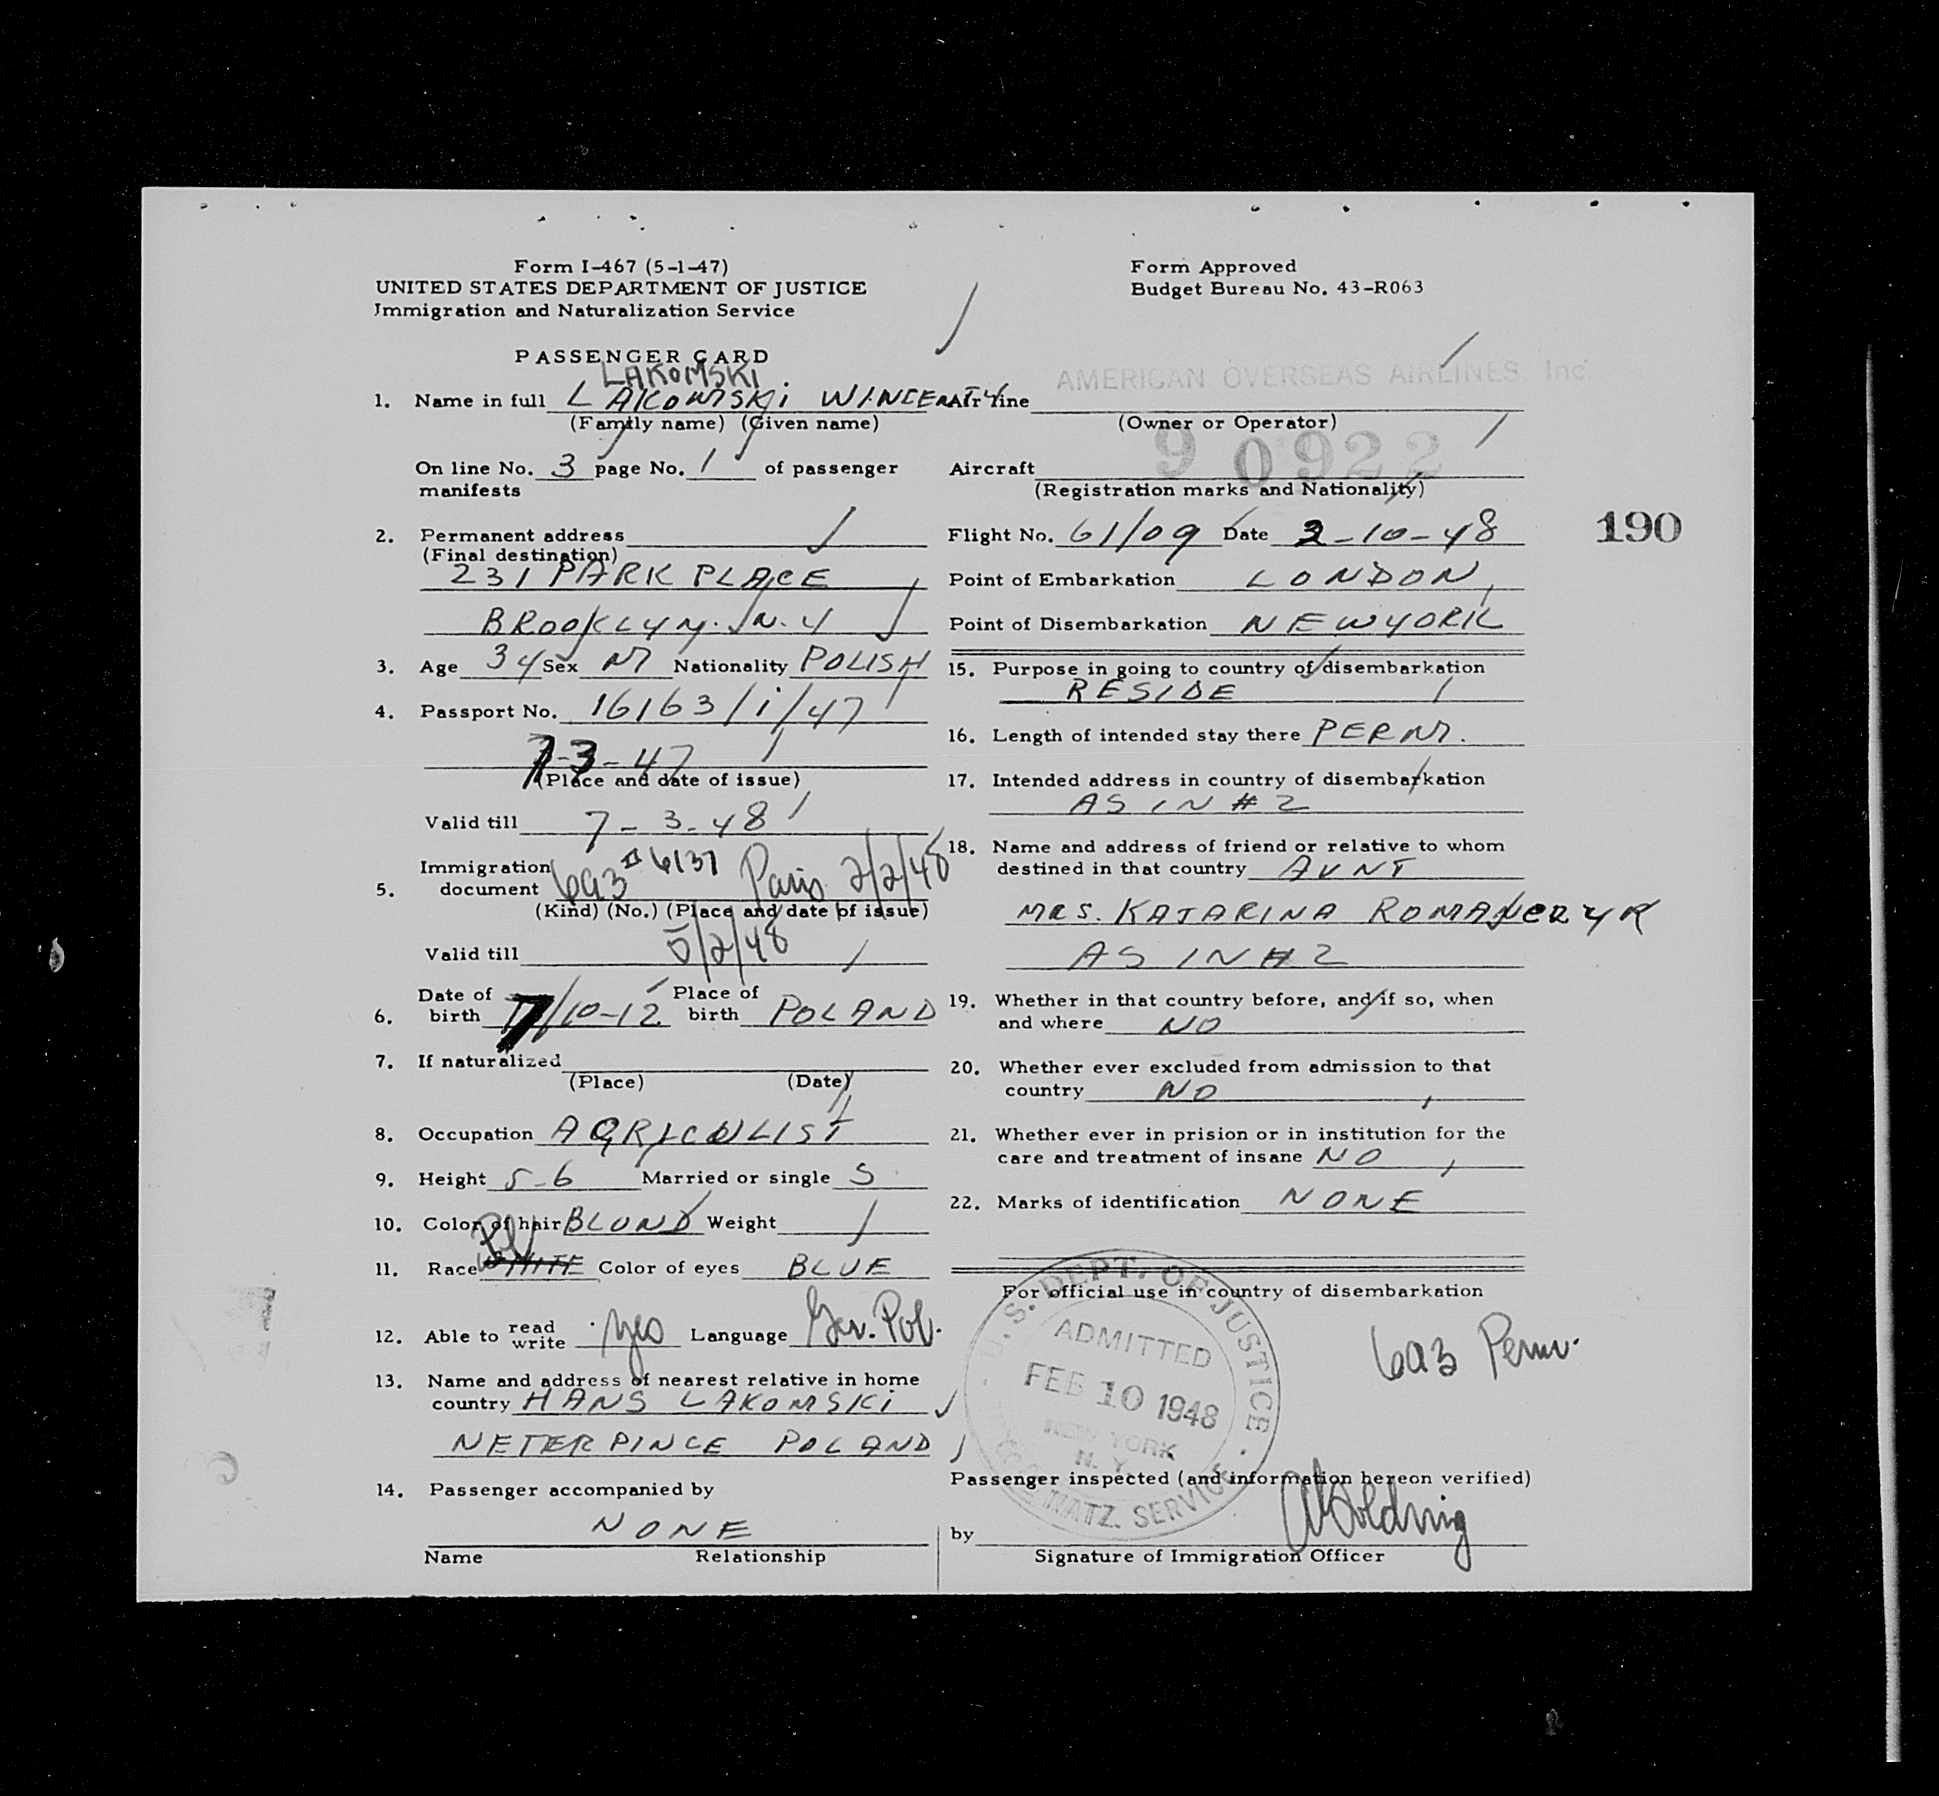 Form I-467 (5-1-47)
UNITED STATES DEPARTMENT OF JUSTICE
Immigration and Naturalization Service
PASSENGER CARD
LAKOMSKI
1. Name in full LAKOMSKI WINCENTY
(Family name) (Given name)
On line No. 3 page No. 1 of passenger
manifests
2. Permanent address
(Final destination)
231 PARK PLACE
BROOKLYN. N.Y
3. Age 34 Sex M Nationality POLISH
4. Passport No. 16163/i/47
7-3-47
(Place and date of issue)
Valid till 7-3-48
Immigration
5. document 6a3 # 6137 Paris 2/2/48
(Kind) (No.) (Place and date of issue)
Valid till /2/48
Date of Place of
6. birth /10-12 birth POLAND
7. If naturalized
(Place) (Date)
8. Occupation AGRICULIST
9. Height 5-6 Married or single S
10. Color of hair BLOND Weight
Pol
11. Race WHITE Color of eyes BLUE
12. Able to read write yes Language Ger. Pol.
13. Name and address of nearest relative in home
country HANS LAKOMSKI
NETERPINCE POLAND
14. Passenger accompanied by
NONE
Name Relationship
Form Approved
Budget Bureau No. 43-R063
AMERICAN OVERSEAS AIRLINES, Inc.
Air line
(Owner or Operator)
90922
Aircraft
(Registration marks and Nationality)
Flight No. 61/09 Date 2-10-48
190
Point of Embarkation LONDON
Point of Disembarkation NEW YORK
15. Purpose in going to country of disembarkation
RESIDE
16. Length of intended stay there PERM.
17. Intended address in country of disembarkation
AS IN #2
18. Name and address of friend or relative to whom
destined in that country AUNT
MRS. KATARINA ROMANCZYK
AS IN #2
19. Whether in that country before, and if so, when
and where NO
20. Whether ever excluded from admission to that
country NO
21. Whether ever in prision or in institution for the
care and treatment of insane NO
22. Marks of identification NONE
For official use in country of disembarkation
6a3 Perm.
U.S. DEPT. OF JUSTICE
ADMITTED
FEB 10 1948
NEW YORK
N. Y.
NATZ. SERVICE
Passenger inspected (and information hereon verified)
by
Signature of Immigration Officer